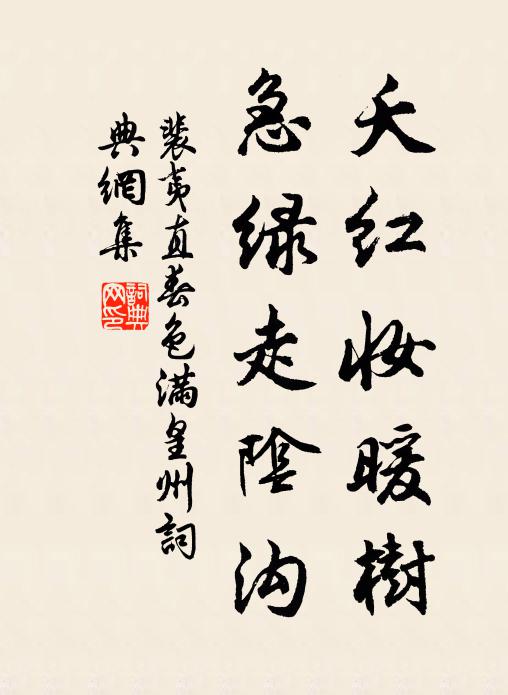 夭红妆暖樹
急緑走陰沟
裴夷直春色滿皇州詞
典網集
詞典网印